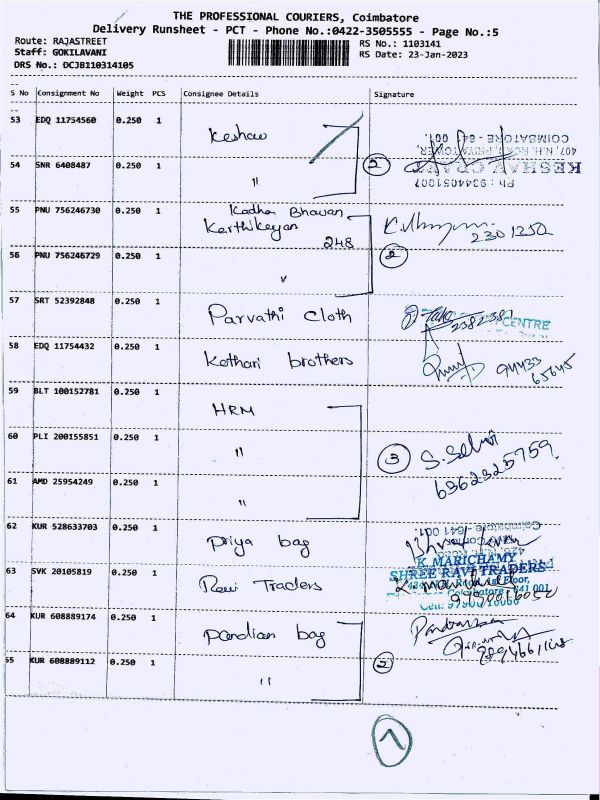 THE PROFESSIONAL COURIERS, Coimbatore
Delivery Runsheet - PCT - Phone No.:0422-3505555 - Page No.:5
Route: RAJASTREET RS No.: 1103141
Staff: GOKILAVANI RS Date: 23-Jan-2023
DRS No.: DCJB110314105
S No Consignment No Weight PCS Consignee Details Signature
53 EDQ 11754560 0.250 1 Keshav
COIMBATORE - 641 001.
KESHAV CRAFT
Ph : 9344051007
54 SNR 6408487 0.250 1 " 2
55 PNU 756246730 0.250 1 Kadha Bhavan
Karthikeyan
248
2301250
56 PNU 756246729 0.250 1 " 2
57 SRT 52392848 0.250 1 Parvathi Cloth 2382387 CENTRE
58 EDQ 11754432 0.250 1 Kothari brothers 94433
65645
59 BLT 100152781 0.250 1 HRM
60 PLI 200155851 0.250 1 " 3 S. Selvi
6362325759
61 AMD 25954249 0.250 1 "
62 KUR 528633703 0.250 1 Priya bag
Coimbatore - 641 001.
K. MARICHAMY
63 SVK 20105819 0.250 1 Ravi Traders SHREE RAVI TRADERS
Coimbatore - 641 001
64 KUR 608889174 0.250 1 Pandian bag Pandian
55 KUR 608889112 0.250 1 " 2
7